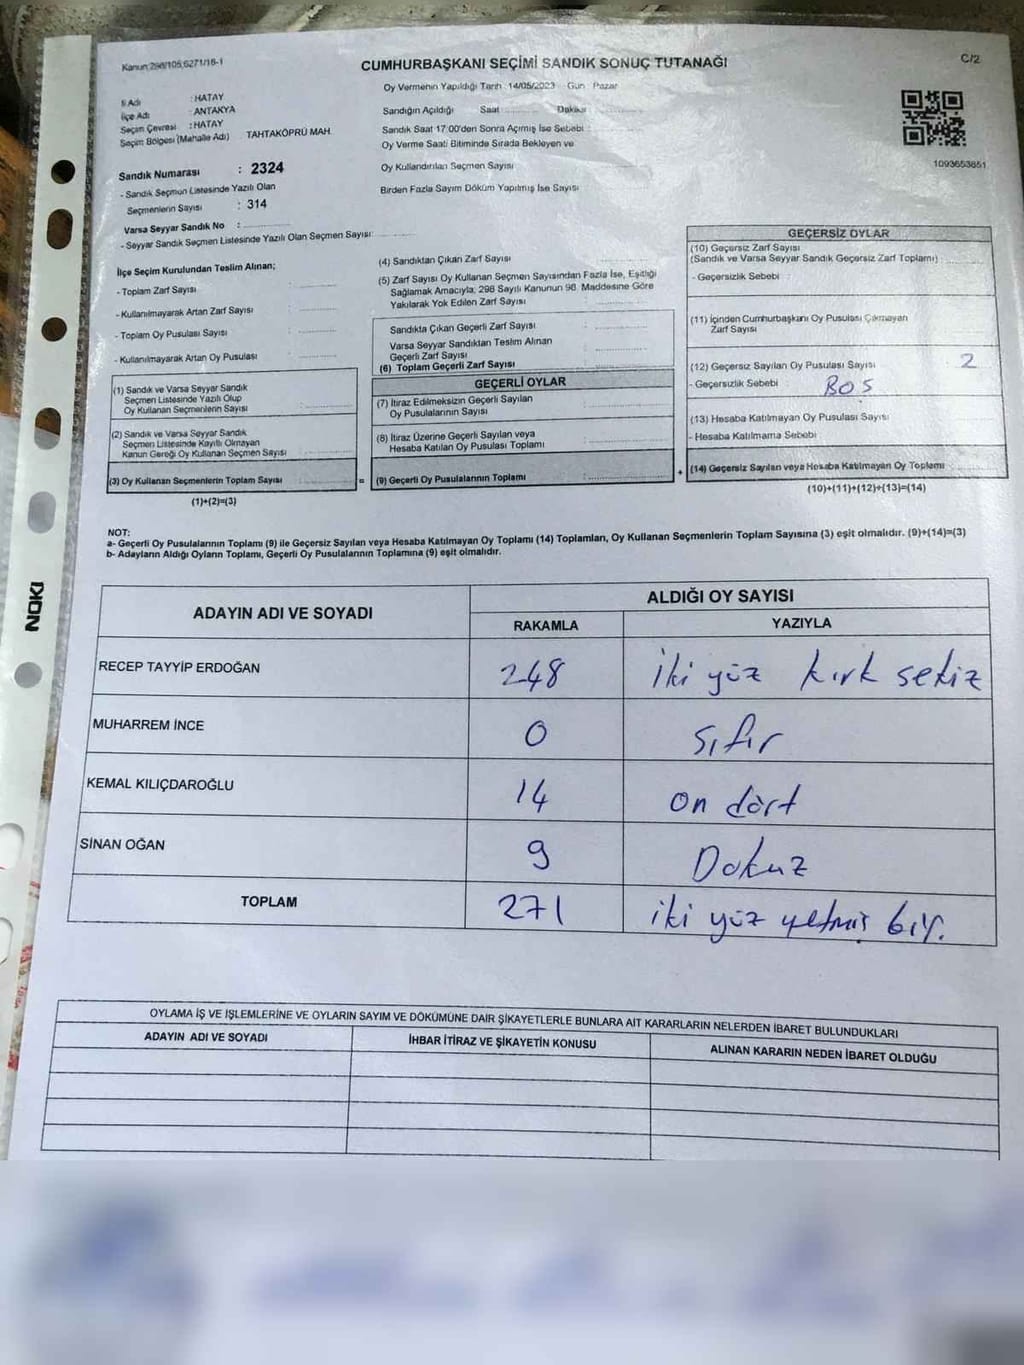 Kanun:298/105,6271/16-1
CUMHURBAŞKANI SEÇİMİ SANDIK SONUÇ TUTANAĞI
C/2
İli Adı : HATAY
İlçe Adı : ANTAKYA
Seçim Çevresi : HATAY
Seçim Bölgesi (Mahalle Adı) TAHTAKÖPRÜ MAH.
Sandık Numarası : 2324
- Sandık Seçmen Listesinde Yazılı Olan
Seçmenlerin Sayısı : 314
Varsa Seyyar Sandık No :
- Seyyar Sandık Seçmen Listesinde Yazılı Olan Seçmen Sayısı:
Oy Vermenin Yapıldığı Tarih : 14/05/2023 Gün : Pazar
Sandığın Açıldığı Saat Dakika
Sandık Saat 17:00'den Sonra Açılmış İse Sebebi :
Oy Verme Saati Bitiminde Sırada Bekleyen ve
Oy Kullandırılan Seçmen Sayısı
Birden Fazla Sayım Döküm Yapılmış İse Sayısı
1093653851
İlçe Seçim Kurulundan Teslim Alınan;
- Toplam Zarf Sayısı :
- Kullanılmayarak Artan Zarf Sayısı :
- Toplam Oy Pusulası Sayısı :
- Kullanılmayarak Artan Oy Pusulası :
(1) Sandık ve Varsa Seyyar Sandık
Seçmen Listesinde Yazılı Olup
Oy Kullanan Seçmenlerin Sayısı :
(2) Sandık ve Varsa Seyyar Sandık
Seçmen Listesinde Kayıtlı Olmayan
Kanun Gereği Oy Kullanan Seçmen Sayısı :
(3) Oy Kullanan Seçmenlerin Toplam Sayısı :
(1)+(2)=(3)
(4) Sandıktan Çıkan Zarf Sayısı :
(5) Zarf Sayısı Oy Kullanan Seçmen Sayısından Fazla İse, Eşitliği
Sağlamak Amacıyla; 298 Sayılı Kanunun 98. Maddesine Göre
Yakılarak Yok Edilen Zarf Sayısı :
Sandıkta Çıkan Geçerli Zarf Sayısı :
Varsa Seyyar Sandıktan Teslim Alınan
Geçerli Zarf Sayısı :
(6) Toplam Geçerli Zarf Sayısı :
GEÇERLİ OYLAR
(7) İtiraz Edilmeksizin Geçerli Sayılan
Oy Pusulalarının Sayısı :
(8) İtiraz Üzerine Geçerli Sayılan veya
Hesaba Katılan Oy Pusulası Toplamı :
= (9) Geçerli Oy Pusulalarının Toplamı :
GEÇERSİZ OYLAR
(10) Geçersiz Zarf Sayısı
(Sandık ve Varsa Seyyar Sandık Geçersiz Zarf Toplamı) :
- Geçersizlik Sebebi :
(11) İçinden Cumhurbaşkanı Oy Pusulası Çıkmayan
Zarf Sayısı
(12) Geçersiz Sayılan Oy Pusulası Sayısı : 2
- Geçersizlik Sebebi : BOŞ
(13) Hesaba Katılmayan Oy Pusulası Sayısı
- Hesaba Katılmama Sebebi
+ (14) Geçersiz Sayılan veya Hesaba Katılmayan Oy Toplamı
(10)+(11)+(12)+(13)=(14)
NOT:
a- Geçerli Oy Pusulalarının Toplamı (9) ile Geçersiz Sayılan veya Hesaba Katılmayan Oy Toplamı (14) Toplamları, Oy Kullanan Seçmenlerin Toplam Sayısına (3) eşit olmalıdır. (9)+(14)=(3)
b- Adayların Aldığı Oyların Toplamı, Geçerli Oy Pusulalarının Toplamına (9) eşit olmalıdır.
NOKI
ADAYIN ADI VE SOYADI
ALDIĞI OY SAYISI
RAKAMLA YAZIYLA
RECEP TAYYİP ERDOĞAN 248 iki yüz kırk sekiz
MUHARREM İNCE 0 sıfır
KEMAL KILIÇDAROĞLU 14 on dört
SİNAN OĞAN 9 Dokuz
TOPLAM 271 iki yüz yetmiş bir.
OYLAMA İŞ VE İŞLEMLERİNE VE OYLARIN SAYIM VE DÖKÜMÜNE DAİR ŞİKAYETLERLE BUNLARA AİT KARARLARIN NELERDEN İBARET BULUNDUKLARI
ADAYIN ADI VE SOYADI İHBAR İTİRAZ VE ŞİKAYETİN KONUSU ALINAN KARARIN NEDEN İBARET OLDUĞU